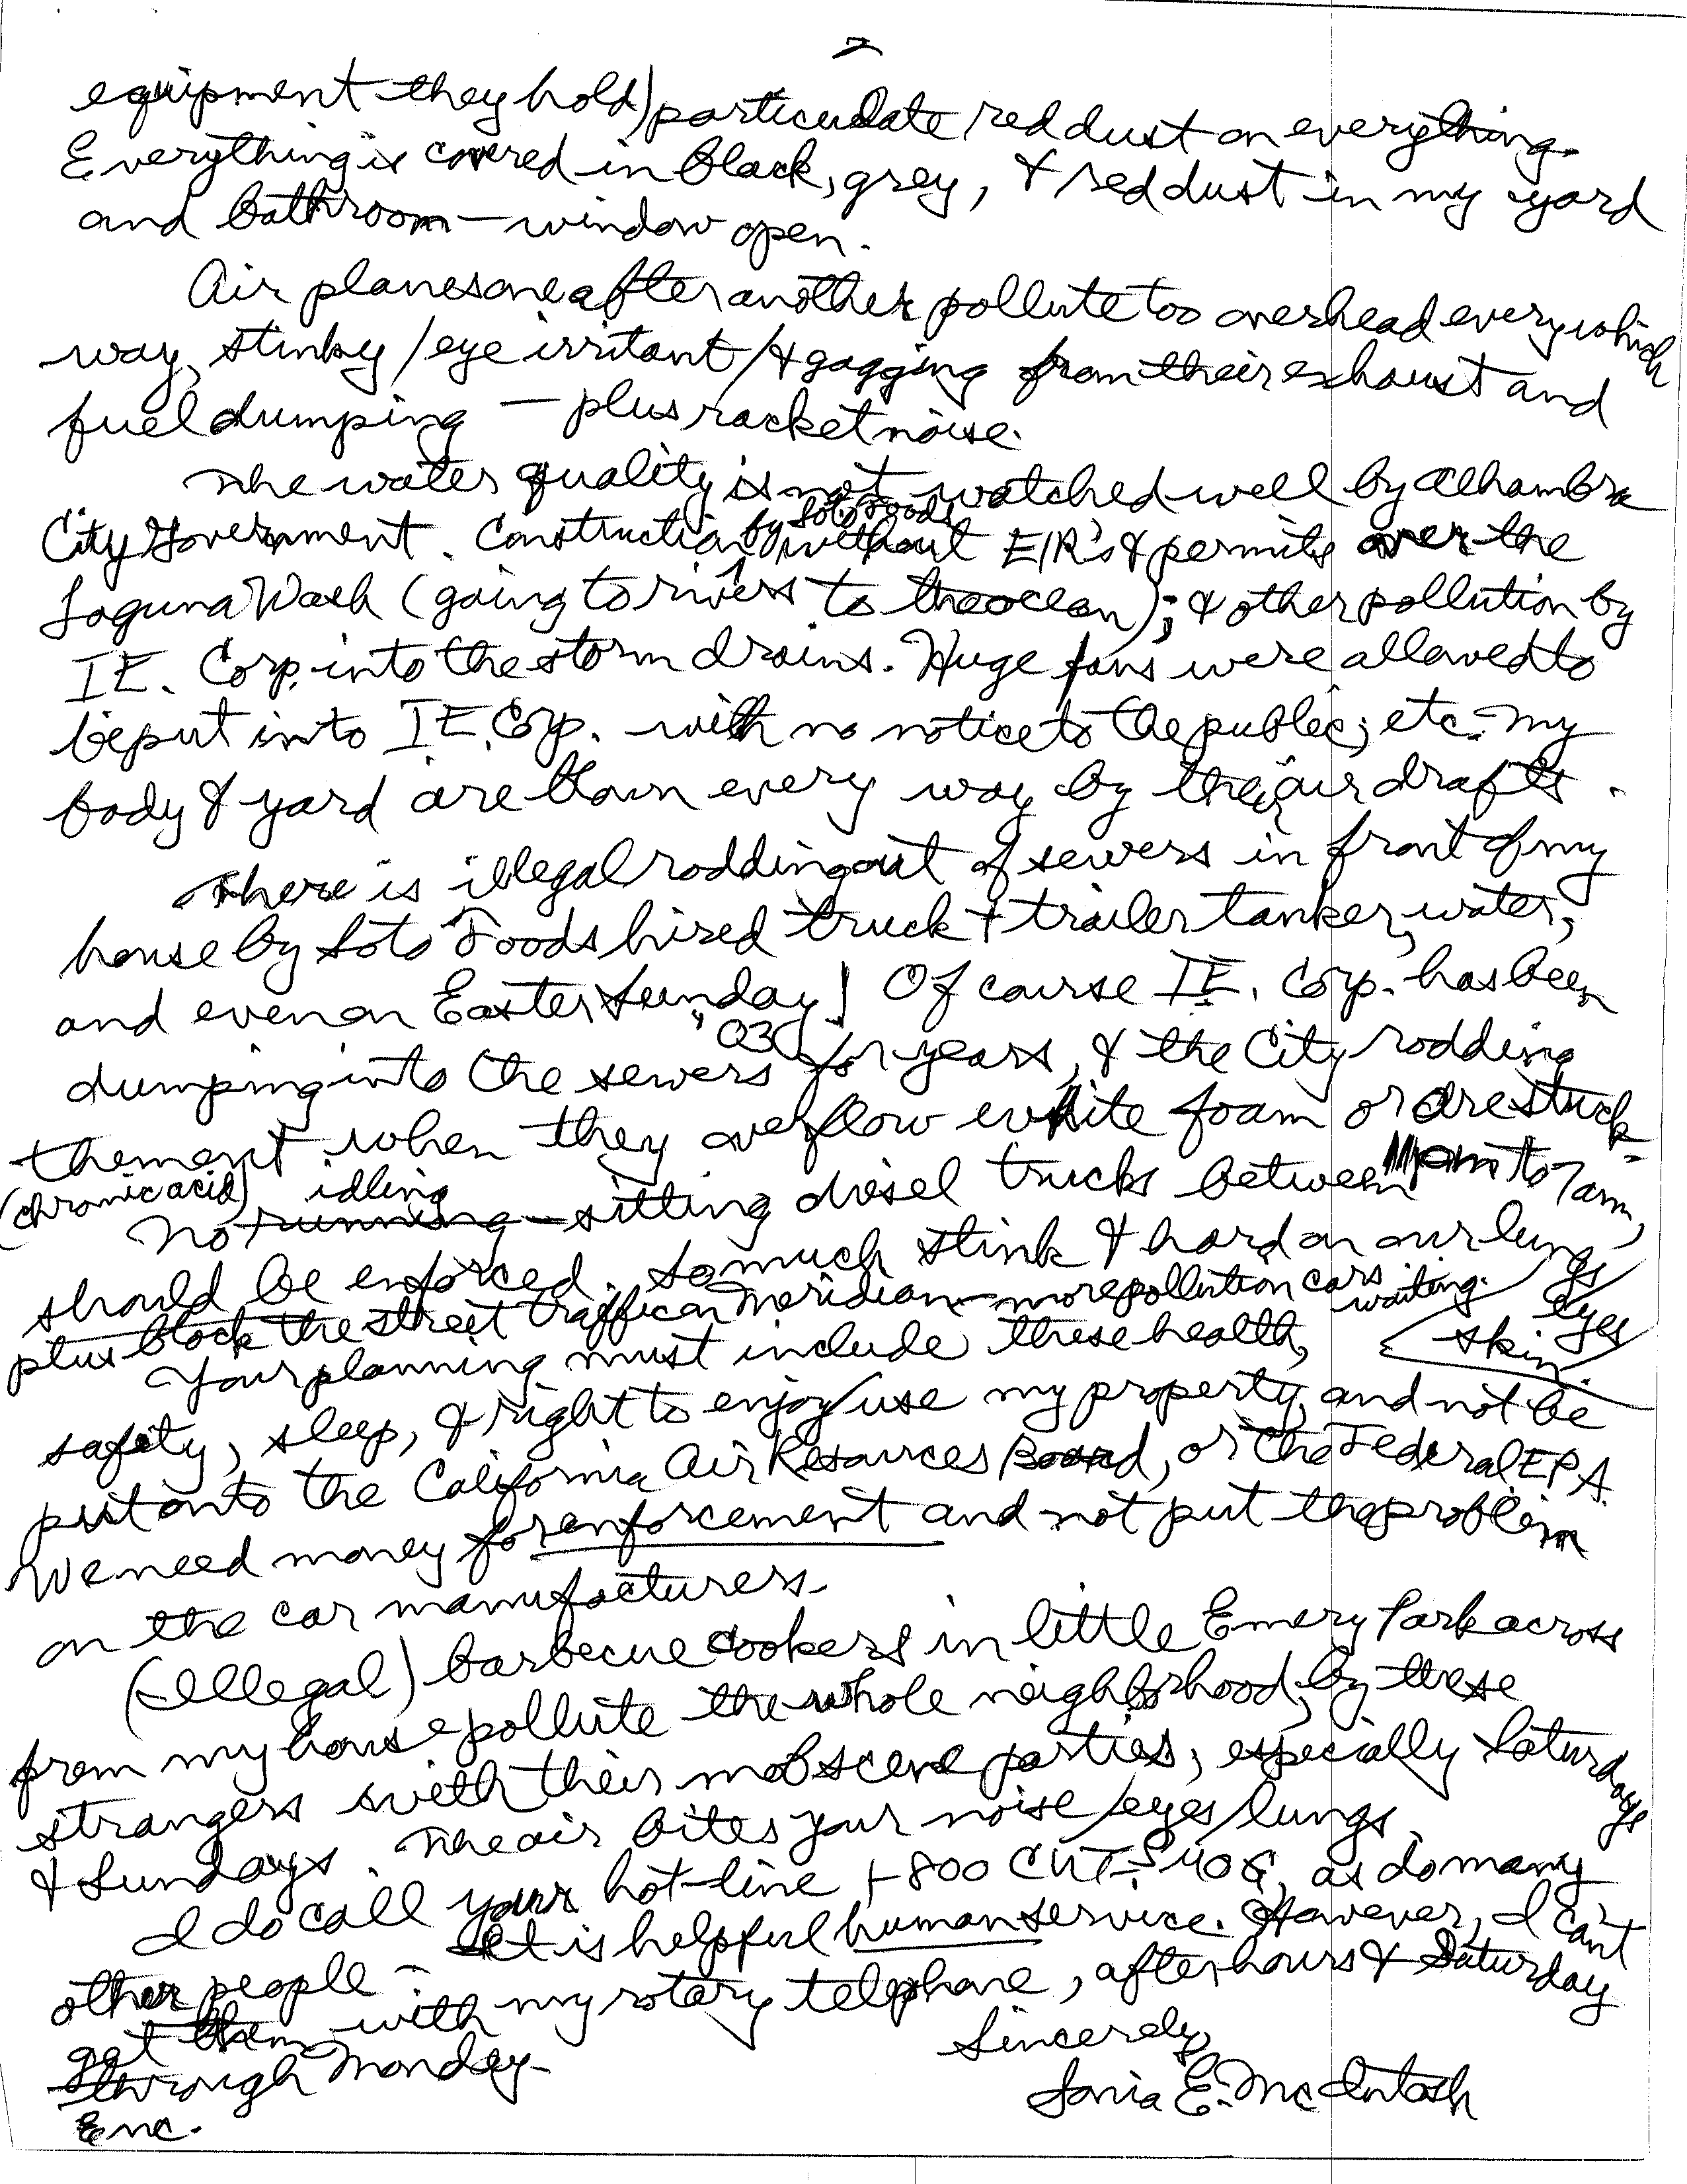 2
equipment they hold) particulate red dust on everything.
Everything is covered in black, grey, & red dust in my yard
and bathroom — window open.
Air planes one after another pollute too overhead every which
way, stinky / eye irritant / & gagging from their exhaust and
fuel dumping — plus racket noise.
The water quality is not watched well by Alhambra
City Government. Construction by Soto Foods without EIR's & permits over the
Laguna Wash (going to rivers to the ocean); & other pollution by
I.E. Corp. into the storm drains. Huge fans were allowed to
be put into I.E. Corp. with no notice to the public; etc. My
body & yard are blown every way by the air drafts.
There is illegal rodding out of sewers in front of my
house by Soto Foods hired truck & trailer tanker, water,
and even on Easter Sunday! Of course I.E. Corp. has been
dumping into the sewers for years, & the City rodding
them out when they overflow white foam or are stuck.
(chromic acid)
No idling sitting diesel trucks between pm to 7am,
should be enforced. So much stink & hard on our lungs/
eyes/
skin.
plus block the street traffic on Meridian — more pollution cars waiting.
Your planning must include these health,
safety, sleep, & right to enjoy/use my property, and not be
put onto the California Air Resources Board, or the Federal EPA.
We need money for enforcement and not put the problem
on the car manufacturers.
(Illegal) barbecue cookers in little Emery Park across
from my house pollute the whole neighborhood, by these
strangers with their mob scene parties, especially Saturdays
& Sundays. The air bites your noise/eyes/lungs.
I do call your hot-line 1-800 CUT-SMOG, as do many
other people — It is helpful human service. However, I can't
get them with my rotary telephone, after hours & Saturday
through Monday.
Sincerely,
Sonia E. McIntosh
Enc.